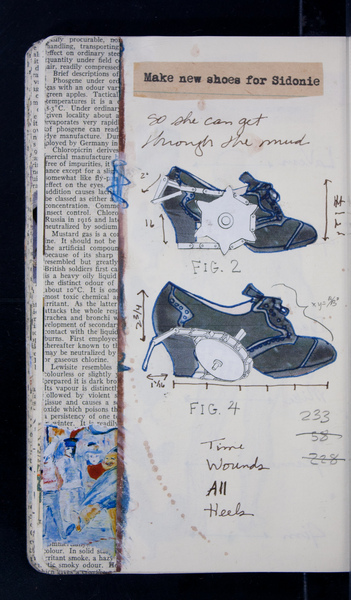 fily procurable, no
handling, transporting
effect on ordinary stee
quantity under field c
air, readily compressed
Brief descriptions of
Phosgene under ord
gas with an odour var
green apples. Tactical
temperatures it is a c
Under ordinar
given locality about
evaporates very rapidly
of phosgene can read
dye manufacture. Dur
ployed by Germany in
Chloropicrin derive
mercial manufacture
free of impurities, it
ance except for a slig
somewhat like fly-p
effect on the eyes.
addition causes
be classed as either
Concentration. Comme
insect control. Chloro
Russia in 1916 and in
neutralized by sodium
Mustard gas is a co
ine. It should not be
the artificial compoun
because of its sharp
resembled but greatly
British soldiers first ca
is a heavy oily liquid
the distinct odour of
about 10°C. It is on
most toxic chemical a
irritant. As the latter
attacks the whole req
trachea and bronchi
evelopment of secondar
contact with the liquid
burns. First employed
thereafter known to th
may be neutralized by
or gaseous chlorine.
Lewisite resembles
colourless or slightly
prepared it is dark bro
Its vapour is distinctl
ollowed by violent s
tissue and causes a s
oxide which poisons th
a persistency of one to
winter. It is readily
colour. In solid sta
rritant smoke, a haz
tic smoky odour. He
Make new shoes for Sidonie
So she can get
through the mud
2"
16
FIG. 2
2 3/4
1 7/16
FIG. 4
233
58
228
Time
Wounds
All
Heels